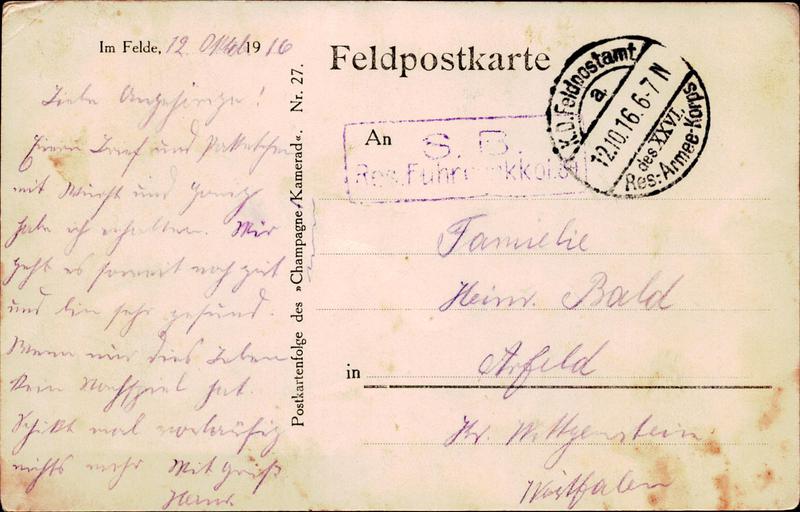 Im Felde, 12. Oktob 1916
Liebe Angehörige!
Euren Brief und Paketchen
mit Wurst und Honig
habe ich erhalten. Mir
geht es soweit noch gut
und bin sehr gesund.
Wenn nur dies Leben
kein Nachspiel hat.
Schikt mal vorläufig
nichts mehr Mit Gruß
Heinr.
Postkartenfolge des »Champagne-Kamerad«. Nr. 27.
Feldpostkarte
K.D. Feldpostamt
a.
12.10.16. 6-7 N
des XXVI.
Res.-Armee-Korps
An
S. B.
Res. Fuhrparkkol.
Familie
Heinr. Bald
in Arfeld
Kr. Wittgenstein
Westfalen